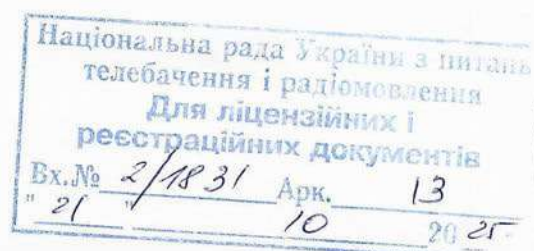 Національна рада України з питань
телебачення і радіомовлення
Для ліцензійних і
реєстраційних документів
Вх.№ 2/1831 Арк. 13
" 21 " 10 2025